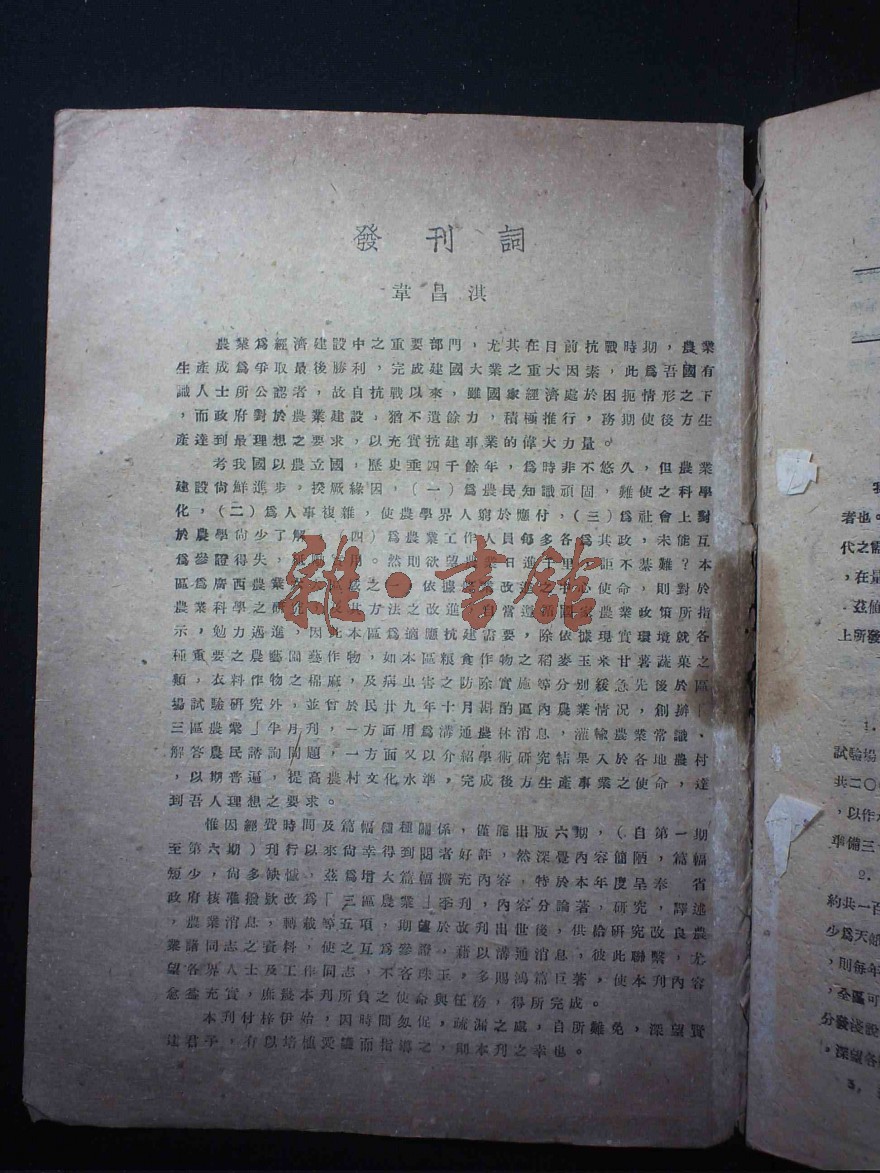 發刊詞
韋昌淇
農業爲經濟建設中之重要部門,尤其在目前抗戰時期,農業
生產成爲爭取最後勝利,完成建國大業之重大因素,此爲吾國有
識人士所公認者,故自抗戰以來,雖國家經濟處於困扼情形之下
,而政府對於農業建設,猶不遺餘力,積極推行,務期使後方生
產達到最理想之要求,以充實抗建事業的偉大力量。
考我國以農立國,歷史垂四千餘年,爲時非不悠久,但農業
建設尙鮮進步,揆厥緣因,(一)爲農民知識頑固,難使之科學
化,(二)爲人事複雜,使農學界人窮於應付,(三)爲社會上對
於農學尙少了解,(四)爲農業工作人員每多各爲其政,未能互
爲參證得失,用。然則欲望農業日進千里,詎不綦難?本
區爲廣西農業之一,依據農業改進之中心使命,則對於
農業科學之研究,及其方法之改進,自當遵循國家農業政策所指
示,勉力邁進,因此本區爲適應抗建需要,除依據現實環境就各
種重要之農藝園藝作物,如本區糧食作物之稻麥玉米甘薯蔬菜之
類,衣料作物之棉麻,及病虫害之防除實施等分別緩急先後於區
塲試驗研究外,並曾於民廿九年十月斟酌區內農業情況,創辦「
三區農業」半月刊,一方面用爲溝通農林消息,灌輸農業常識,
解答農民諮詢問題,一方面又以介紹學術研究結果入於各地農村
,以期普遍,提高農村文化水準,完成後方生產事業之使命,達
到吾人理想之要求。
惟因經費時間及篇幅種種關係,僅能出版六期,(自第一期
至第六期)刊行以來尙幸得到閱者好評,然深覺內容簡陋,篇幅
短少,尙多缺憾,茲爲增大篇幅擴充內容,特於本年度呈奉 省
政府核准撥欵改爲「三區農業」季刊,內容分論著,研究,譯述
,農業消息,轉載等五項,期望於改刊出世後,供給研究改良農
業諸同志之資料,使之互爲參證,藉以溝通消息,彼此聯繫,尤
望各界人士及工作同志,不吝珠玉,多賜鴻篇巨著,使本刊內容
愈益充實,庶幾本刊所負之使命與任務,得所完成。
本刊付梓伊始,因時間匆促,疏漏之處,自所難免,深望賢
達君子,有以培植愛護而指鄉之,則本刊之幸也。
雜·書館
者也。
代之需
,在量
茲値
上所發
1.
試驗塲
共二〇
,以作
準備三十
2.
約共一百
少爲天
,則每年
,全區可
分發淺說
,深望各
3.